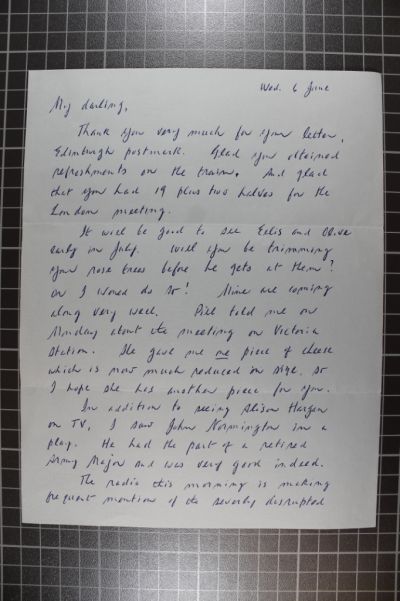 Wed. 6 June
My darling,
Thank you very much for your letter,
Edinburgh postmark. Glad you obtained
refreshments on the train. And glad
that you had 19 plus two halves for the
London meeting.
It will be good to see and Olive
early in July. Will you be trimming
your rose trees before he gets at them?
or I would do so! Mine are coming
along very well. told me on
Monday about the meeting on Victoria
Station. She gave me one piece of cheese
which is now much reduced in size. so
I hope she has another piece for you.
In addition to seeing Alison
on TV, I saw John Normington in a
play. He had the part of a retired
Army Major and was very good indeed.
The radio this morning is making
frequent mention of the severely disrupted